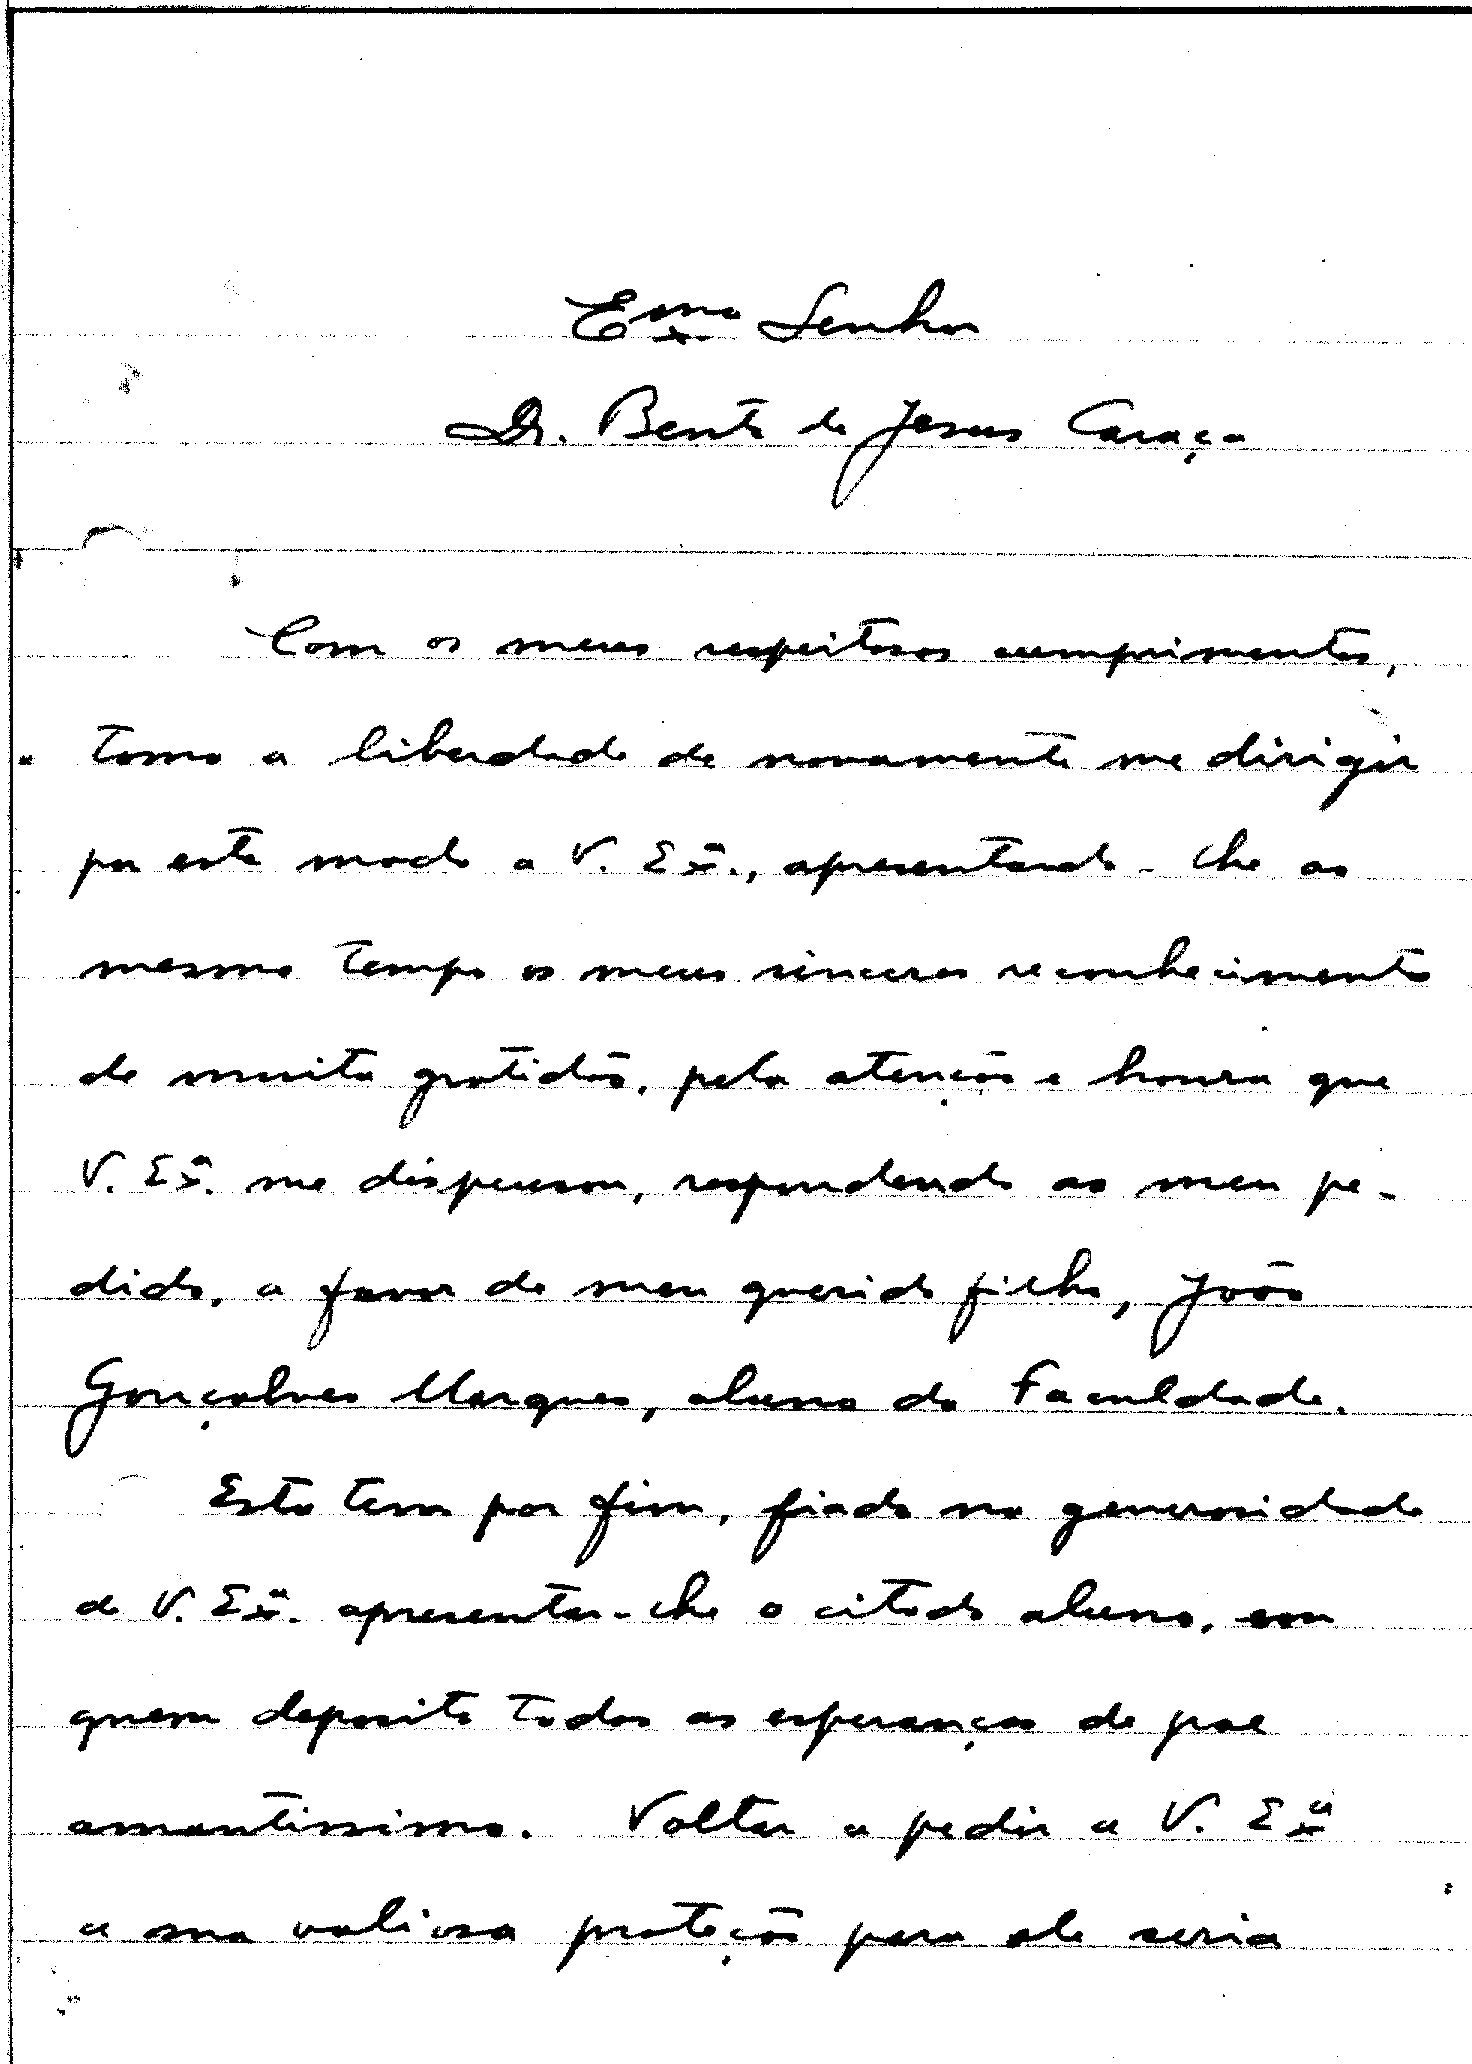 Exmo Senhor
Dr. Bento de Jesus Caraça
Com os meus respeitosos cumprimentos,
tomo a liberdade de novamente me dirigir
por este modo a V. Exª., apresentando-lhe ao
mesmo tempo os meus sinceros reconhecimento
de muita gratidão, pela atenção e honra que
V. Exª. me dispensou, respondendo ao meu pe-
dido, a favor de meu querido filho, João
Gonçalves Marques, aluno da Faculdade.
Esta tem por fim, fiado na generosidade
de V. Exª. apresentar-lhe o citado aluno, em
quem deposito todas as esperanças de pae
amantissimo. Voltar a pedir a V. Exª
a sua valiosa proteção para ele seria